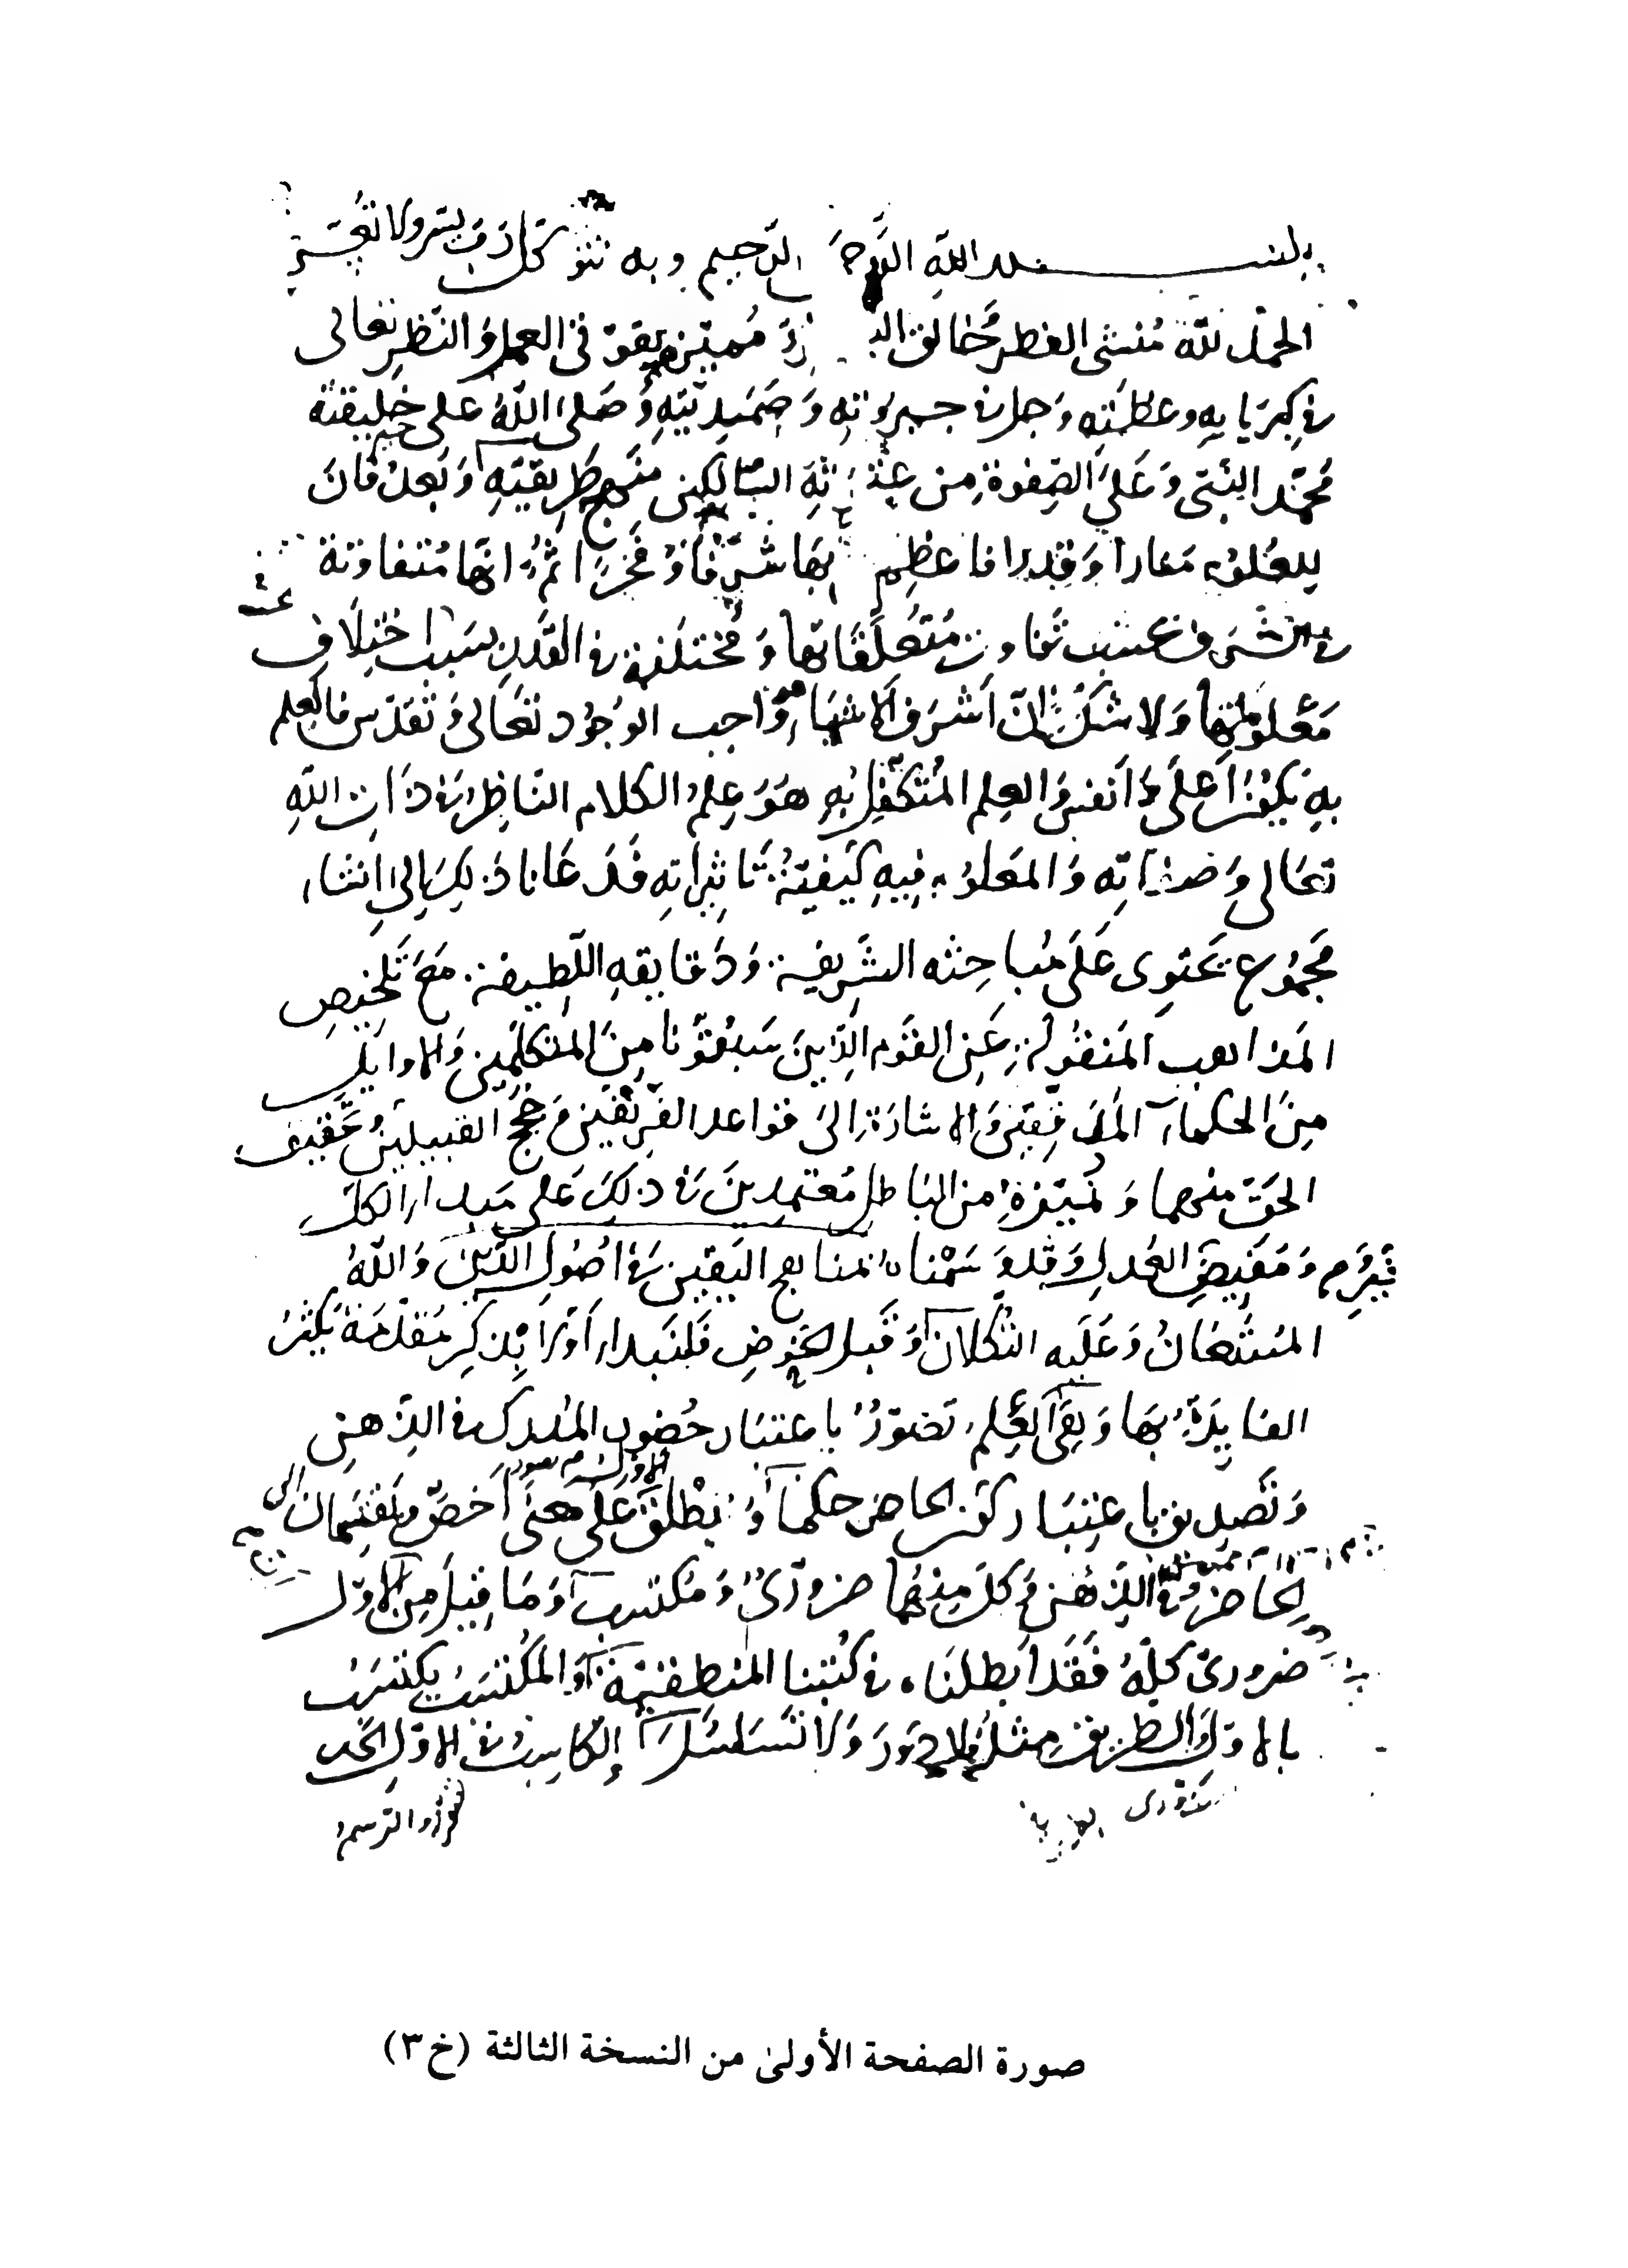 بسم الله الرحمن الرحيم وبه نثق رب يسر ولا تعسر
الحمد لله منشئ الفطر وخالق مميزهم بقوتي العمل والنظر تعالى
في كبريايه وعظمته وجل في جبروته وصمديته وصلى الله على خليقته
محمد النبي وعلى الصفوة من السالكين منهج طريقته وبعد فان
للعلوم مقدارا عظيم بها شرفا وفخرا ثم انها متفاوتة
في الشرف تفاوت متعلقاتها ومختلفة في القدر بسبب اختلاف
معلوماتها ولا شك ان اشرف الاشياء هو واجب الوجود تعالى وتقدس فالعلم
به يكون اعلى وانفس والعلم المتكفل به هو علم الكلام الناظر في ذات الله
تعالى وصفاته والمعلوم فيه كيفية تاثيراته فدعانا ذلك الى انشاء
مجموع يحتوى على مباحثه الشريفة ودقايقه اللطيفة مع تلخيص
المذاهب المنقولة عن القوم الذين سبقونا من المتكلمين والاوايل
من الحكماء المدققين والاشارة الى قواعد الفريقين وحجج القبيلين وتحقيق
الحق منهما وتميزه من الباطل معتمدين في ذلك على مبداء الكل
ومفيض العدل وقد وسمناه بمناهج اليقين في اصول الدين والله
المستعان وعليه التكلان وقبل الخوض فلنبداء اولا بذكر مقدمة يكثر
الفايدة بها وهى العلم تصور باعتبار حضور المدرك في الذهن
وتصديق باعتبار كون الحاضر حكما ويطلق على معنى اخص ويقتسمان
الحاضر في الذهن وكل منهما ضروري ومكتسب وما قيل من الاول
ضرورى كله فقد ابطلناه في كتبنا المنطقية والمكتسب يكتسب
بالاول والطريق مثله فلا دور ولا تسلسل الكاسب في الاول الحد
والرسم
صورة الصفحة الأولىٰ من النسخة الثالثة (خ ٣)